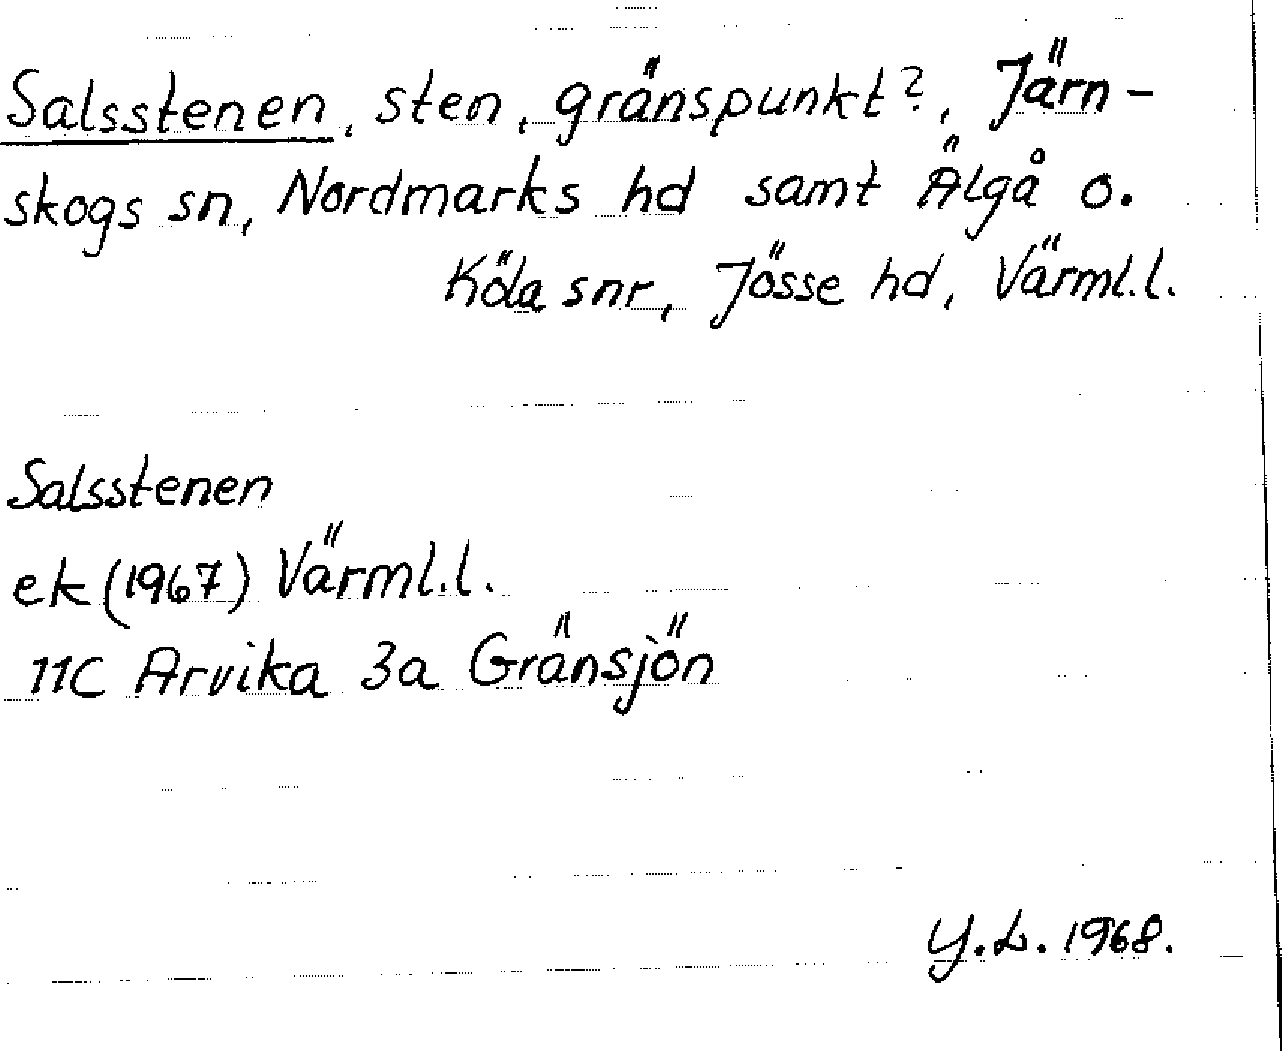 Salsstenen, sten, gränspunkt?, Järn-
skogs sn, Nordmarks hd samt Älgå o.
Köla snr, Jösse hd, Värml.l.
Salsstenen
ek (1967) Värml.l.
11C Arvika 3a Gränsjön
Y.L. 1968.